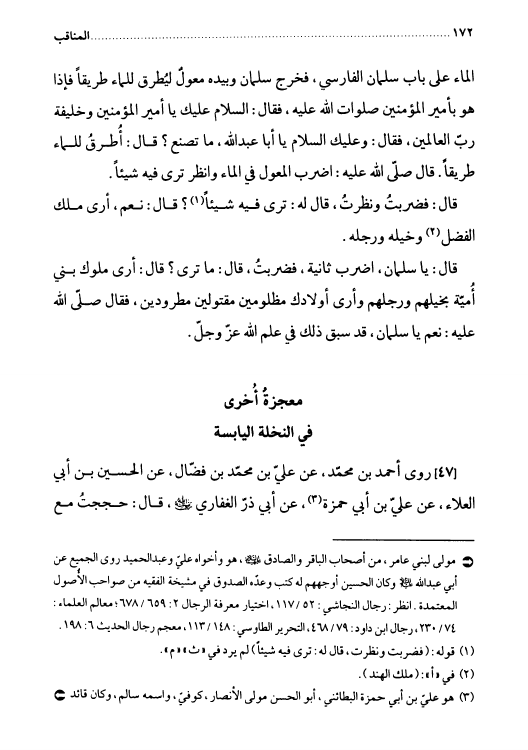 ١٧٢ ........................................ المناقب
الماء على باب سلمان الفارسي ، فخرج سلمان وبيده معولٌ ليُطرق للماء طريقاً فإذا
هو بأمير المؤمنين صلوات الله عليه ، فقال : السلام عليك يا أمير المؤمنين وخليفة
ربّ العالمين ، فقال : وعليك السلام يا أبا عبدالله ، ما تصنع ؟ قـال : أُطـرقُ للـماء
طريقاً . قال صلّى الله عليه : اضرب المعول في الماء وانظر ترى فيه شيئاً .
قال : فضربتُ ونظرتُ ، قال له : ترى فـيه شـيئاً(١)؟ قـال : نـعم ، أرى مـلك
الفضل(٢) وخيله ورجله .
قال : يا سلمان ، اضرب ثانية ، فضربتُ ، قال : ما ترى ؟ قال : أرى ملوك بـني
أُميّة بخيلهم ورجلهم وأرى أولادك مظلومين مقتولين مطرودين ، فقال صـلّى الله
عليه : نعم يا سلمان ، قد سبق ذلك في علم الله عزّ وجلّ .
معجزةُ أُخرى
في النخلة اليابسة
[٤٧] روى أحمد بن محمّد ، عن عليّ بن محمّد بن فضّال ، عن الحسين بـن أبي
العلاء ، عن عليّ بن أبي حمزة(٣)، عن أبي ذرّ الغفاري ، قـال : حـججتُ مـع
مولى لبني عامر ، من أصحاب الباقر والصادق ، هو وأخواه عليّ وعبدالحميد روى الجميع عن
أبي عبدالله وكان الحسين أوجههم له كتب وعدّه الصدوق في مشيخة الفقيه من صواحب الأُصول
المعتمدة . انظر : رجال النجاشي : ٥٢ / ١١٧ ، اختيار معرفة الرجال ٢ : ٦٥٩ / ٦٧٨ ؛ معالم العلماء :
٧٤ / ٢٣٠ ، رجال ابن داود : ٧٩ / ٤٦٨ ، التحرير الطاوسي : ١٤٨ / ١١٣ ، معجم رجال الحديث ٦ : ١٩٨ .
(١) قوله : (فضربت ونظرت ، قال له : ترى فيه شيئاً) لم يرد في «ث» «م» .
(٢) في «أ» : (ملك الهند) .
(٣) هو عليّ بن أبي حمزة البطائني ، أبو الحسن مولى الأنصار ، كوفيّ ، واسمه سالم ، وكان قائد